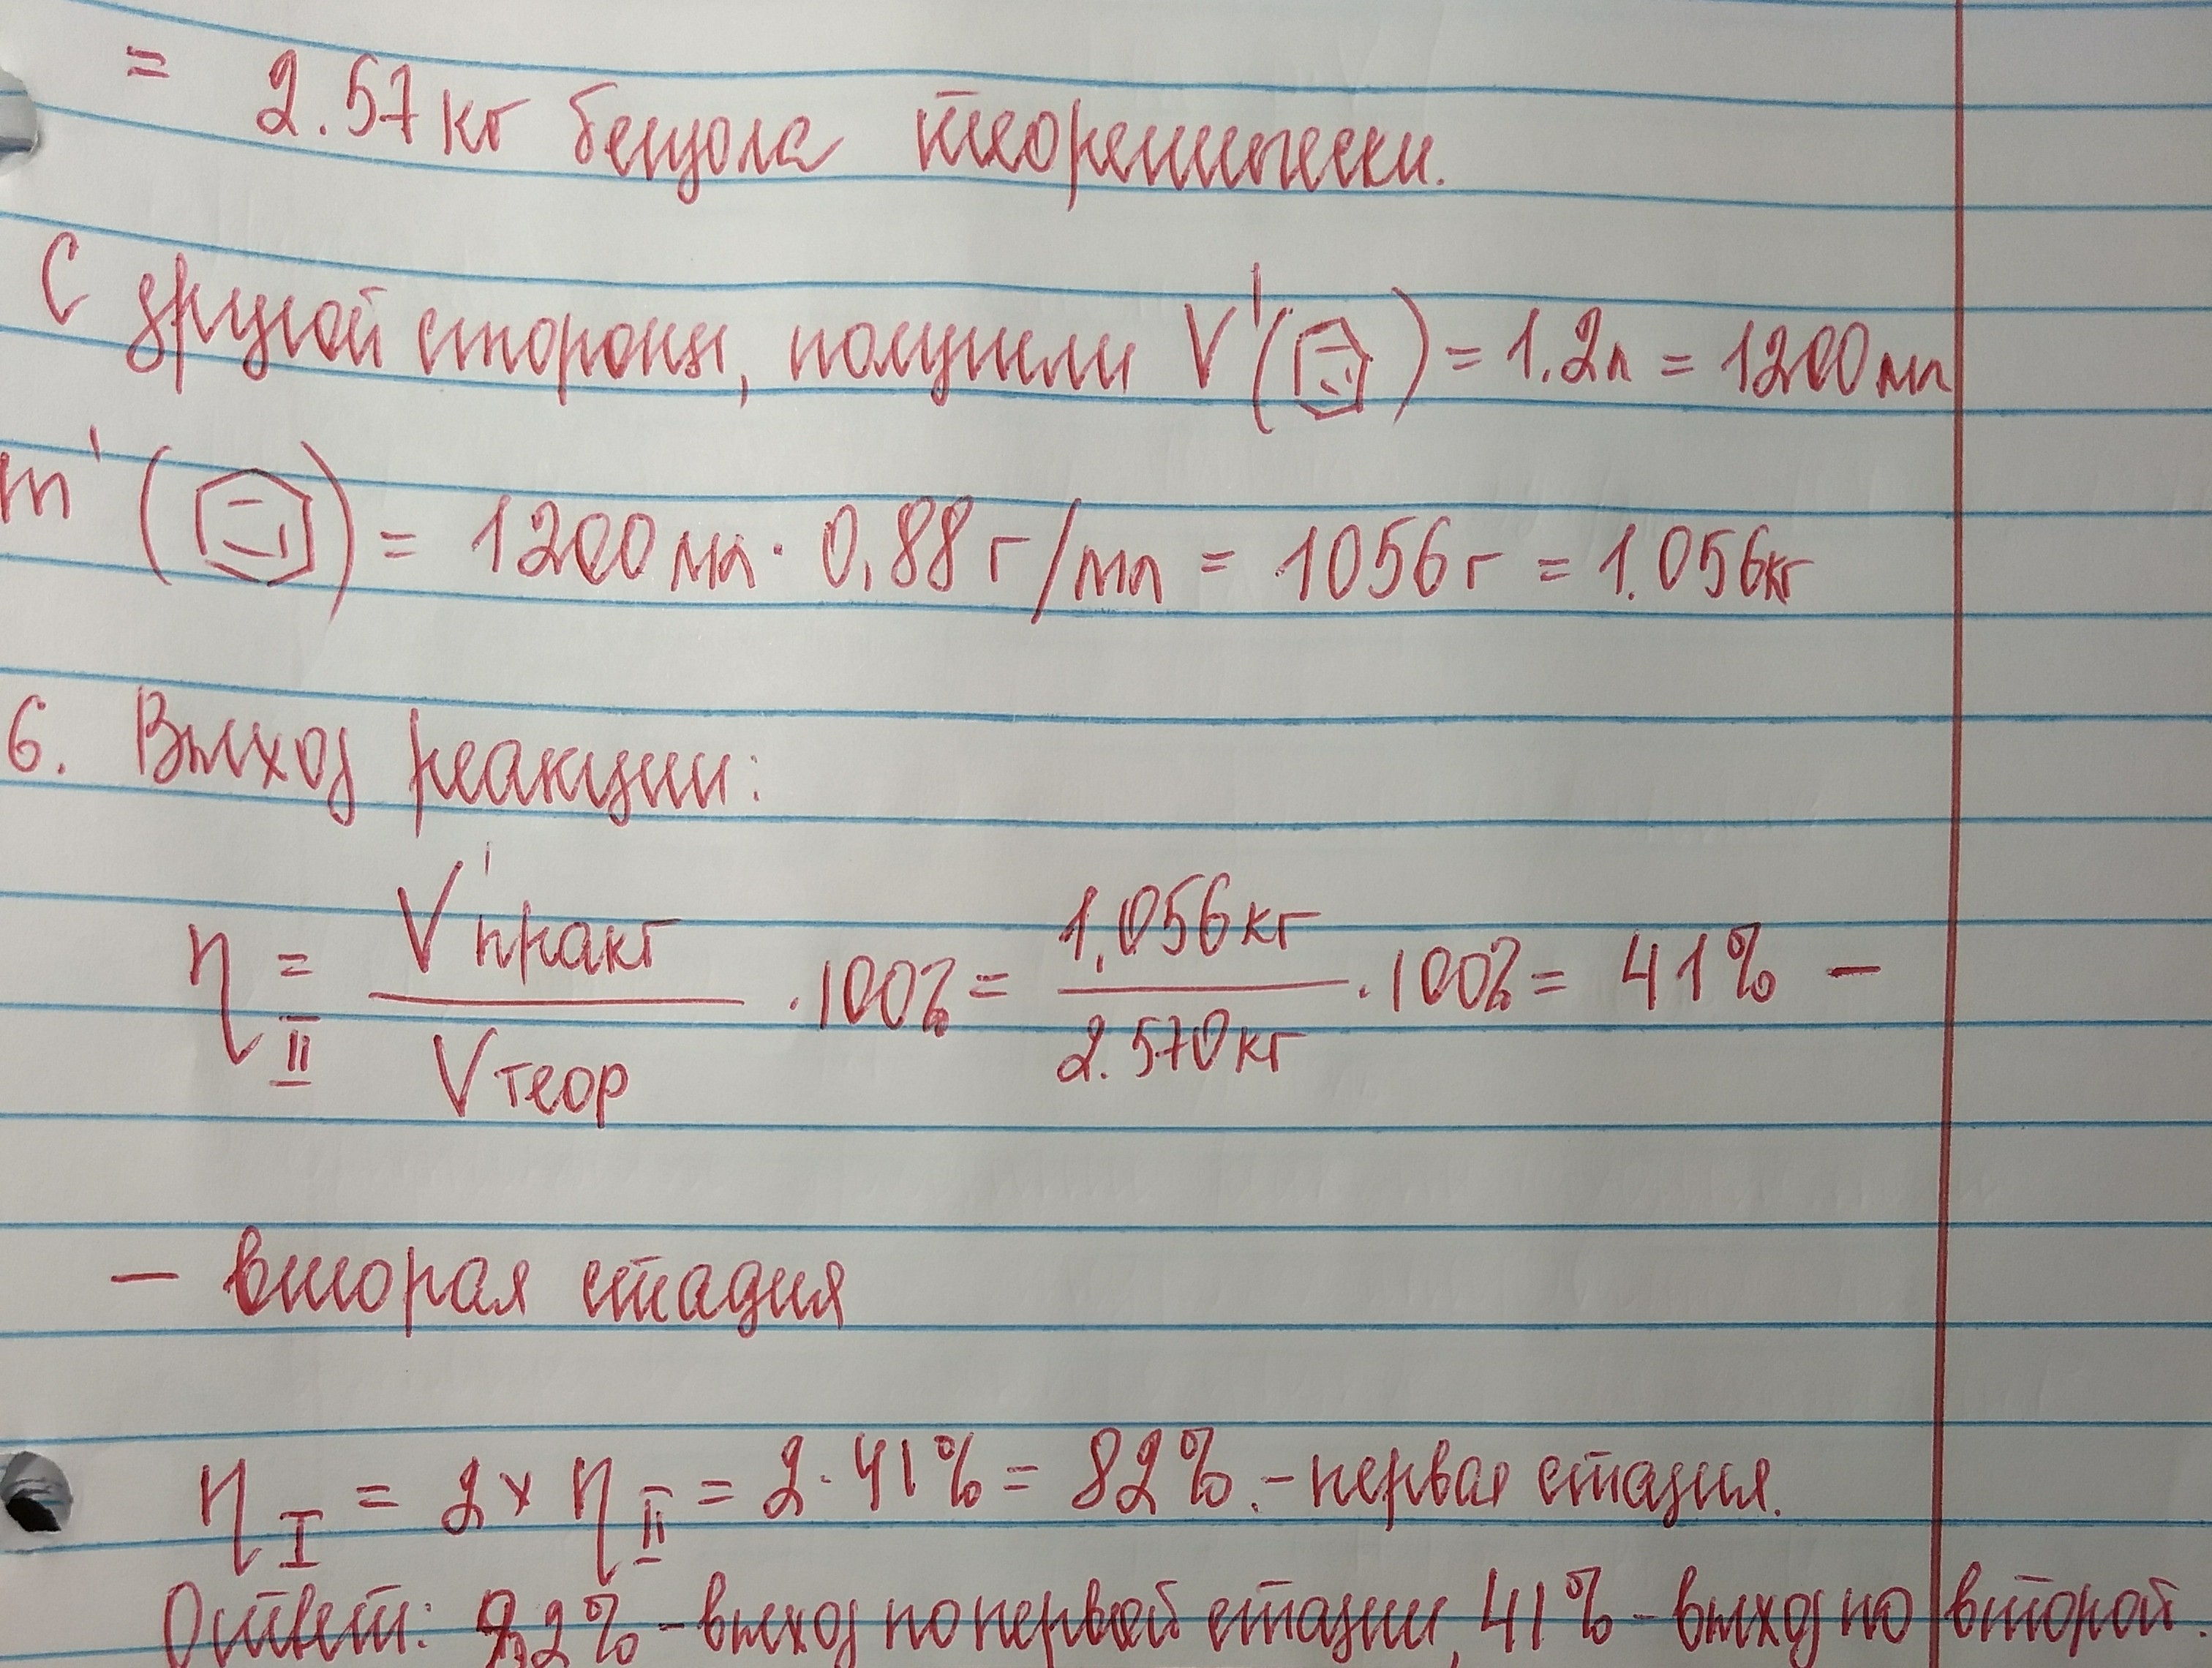 = 2.57 кг бензола теоретически.
С другой стороны, получили V'( ) = 1.2л = 1200 мл
m' ( ) = 1200 мл · 0,88 г/мл = 1056 г = 1.056 кг
6. Выход реакции:
η II = V'практ / Vтеор · 100% = 1,056 кг / 2.570 кг · 100% = 41% –
– вторая стадия
η I = 2 × η II = 2 · 41% = 82%. – первая стадия.
Ответ: 82% – выход по первой стадии, 41% – выход по второй.